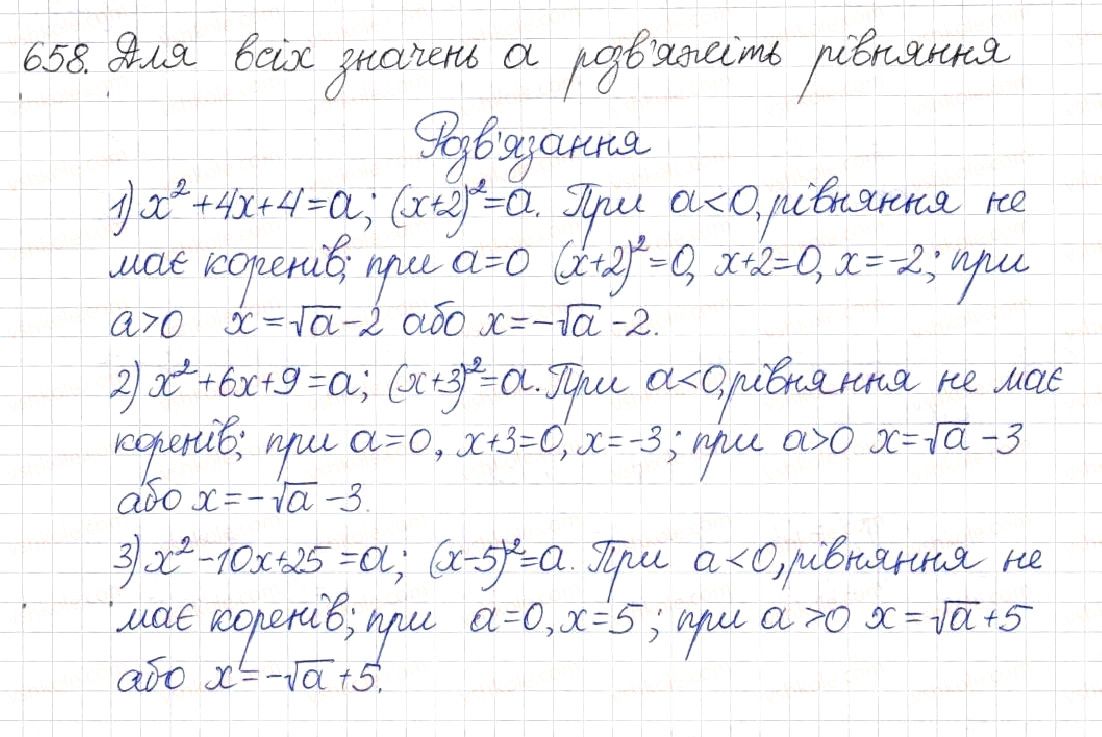 658. Для всіх значень а розв'яжіть рівняння
Розв'язання
1) x²+4x+4=a; (x+2)²=a. При a<0, рівняння не
має коренів; при a=0 (x+2)²=0, x+2=0, x=-2; при
a>0 x=√a-2 або x=-√a-2.
2) x²+6x+9=a; (x+3)²=a. При a<0, рівняння не має
коренів; при a=0, x+3=0, x=-3; при a>0 x=√a-3
або x=-√a-3.
3) x²-10x+25=a; (x-5)²=a. При a<0, рівняння не
має коренів; при a=0, x=5; при a>0 x=√a+5
або x=-√a+5.